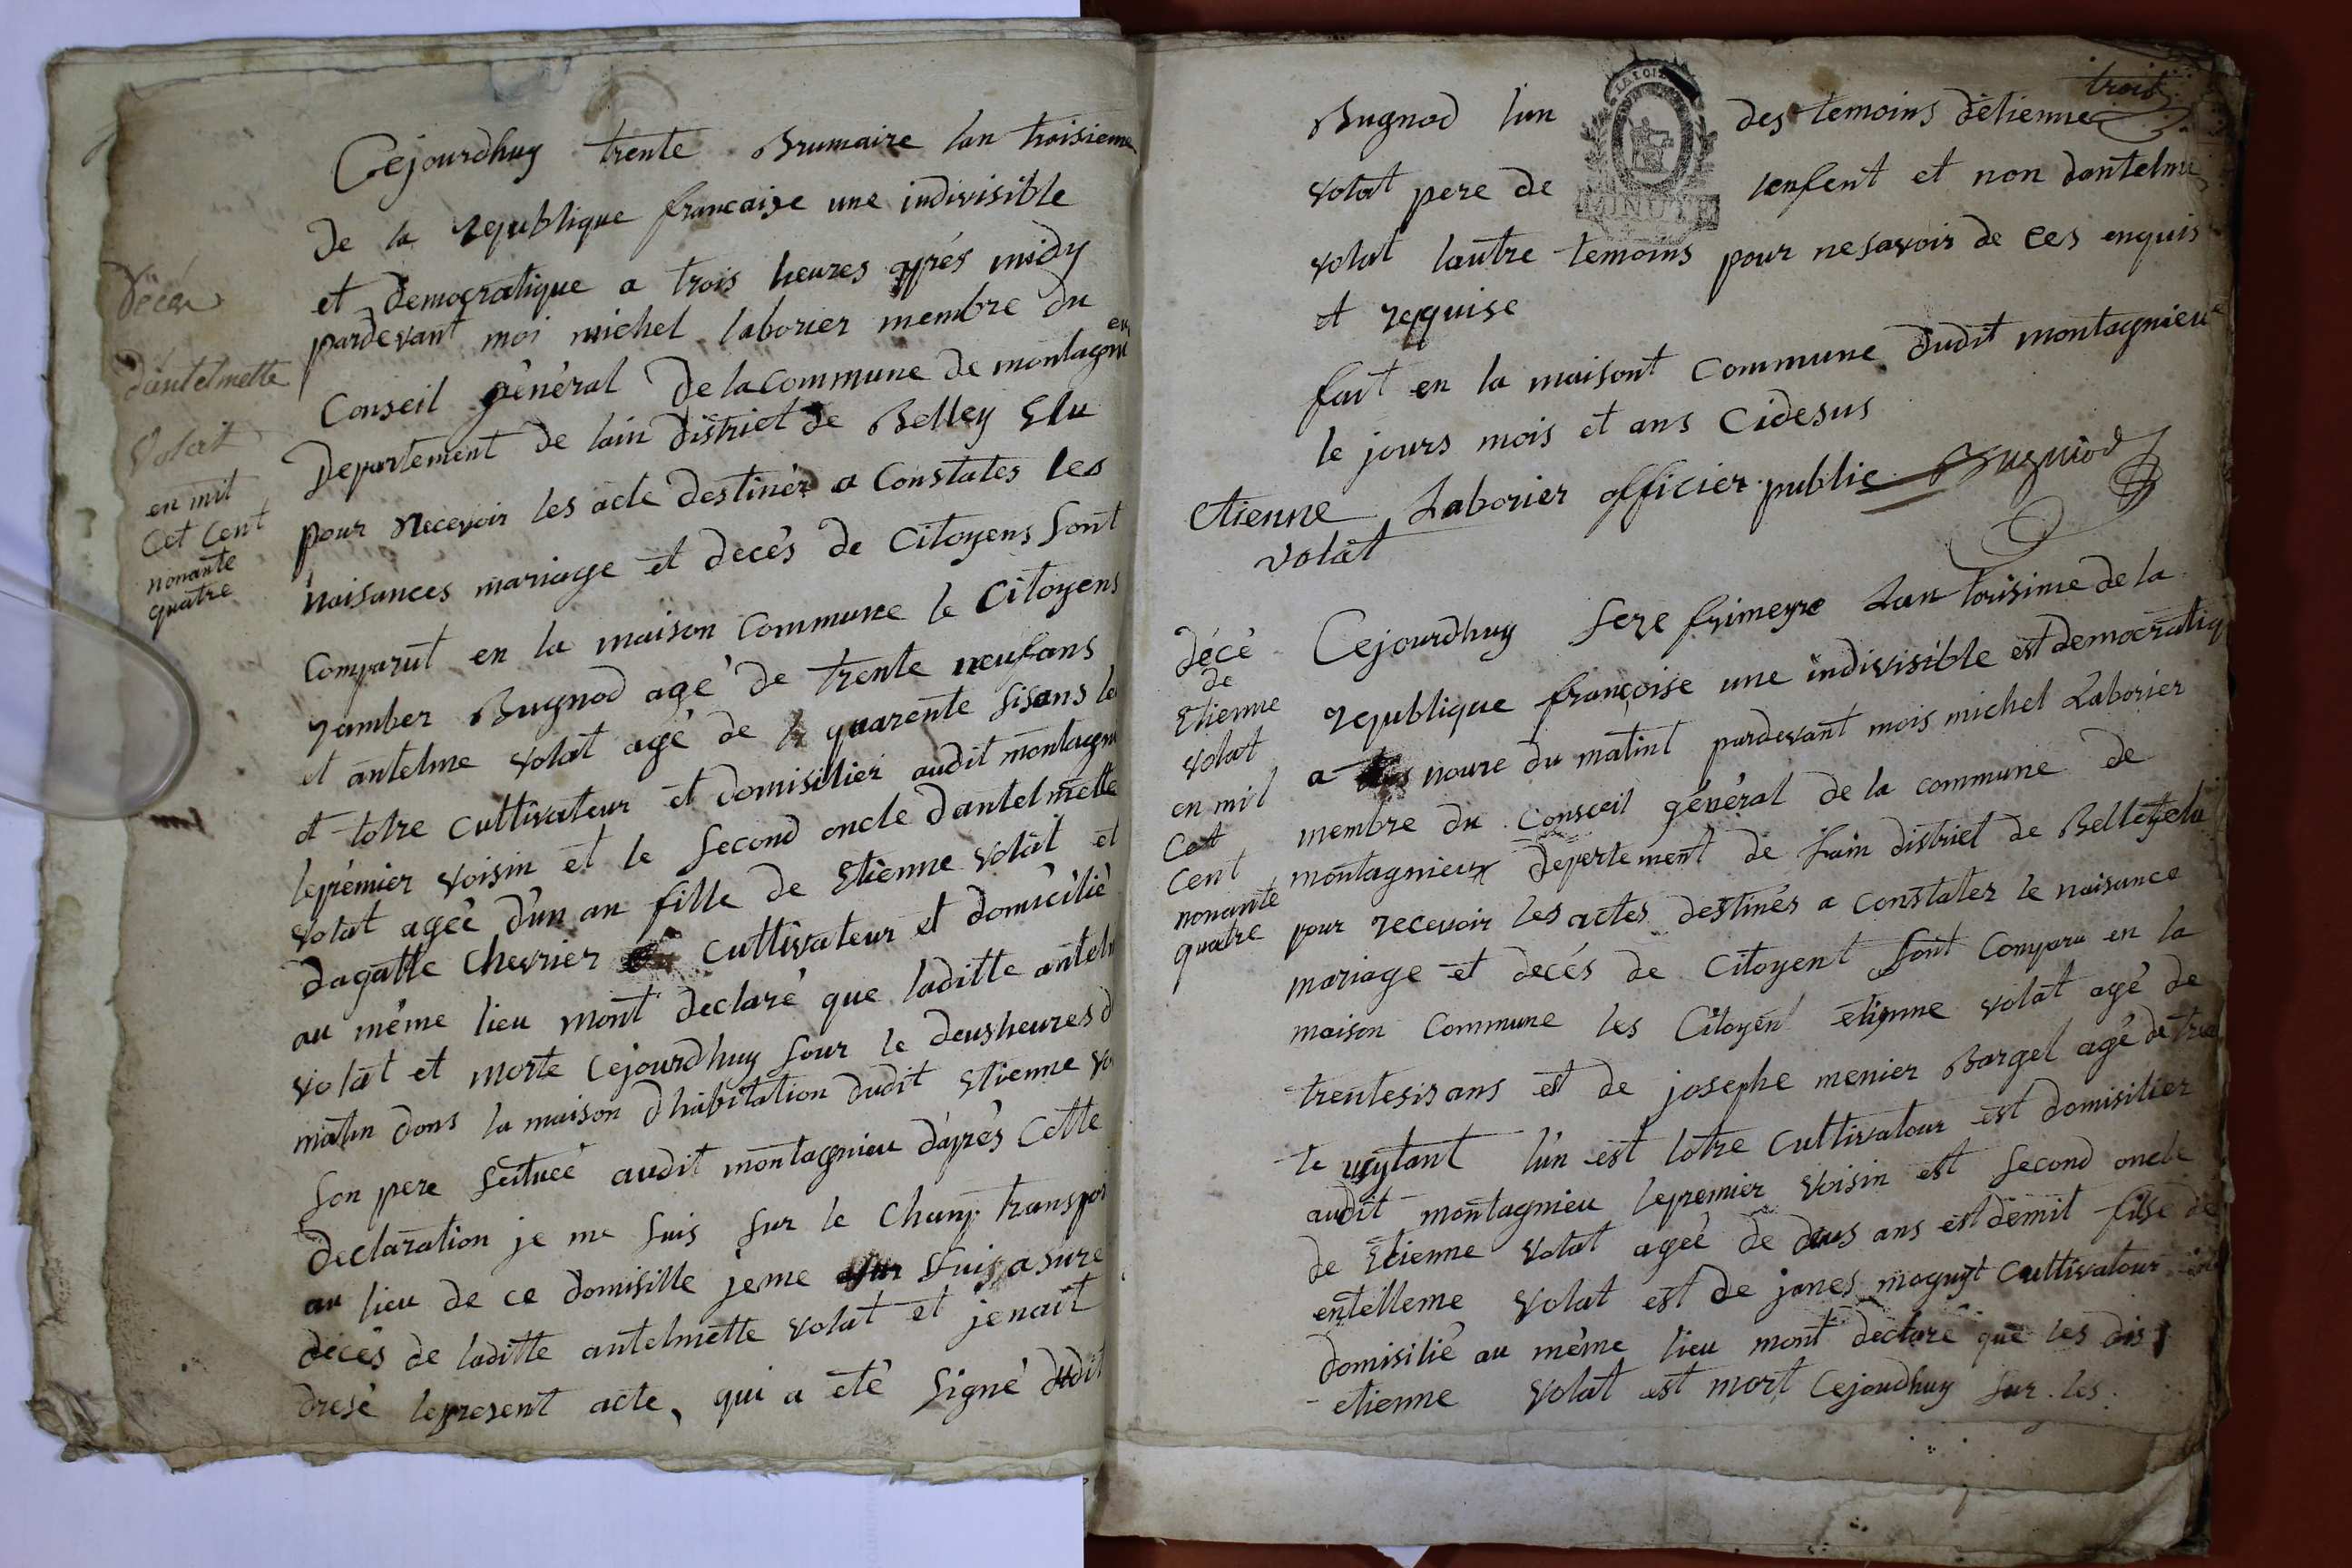 Décé
dantelmette
Volat
en mil
Cet Cent
nonante
quatre
Cejourdhuy trente Brumaire lan troisieme
De la republique francaise une indivisible
et democratique a trois heures après midy
pardevant moi michel laborier membre du
Conseil général De la Commune de montagnieu
Departement de lain District de Belley Elu
pour Recevoir les acte destinér a Constates les
naisances mariage et decés de Citoyens Sont
Comparut en la maison Commune le Citoyens
Jamber Bugnod agé de trente neufans
et antelme volat agé de quarente sisans le
et lotre cultivateur et domisilier audit montagn
lepremier voisin et le Second oncle dantelmette
volat ageé d'un an fille de Etienne volat et
dagatte Chevrier cultivateur et domicilié
au même lieu mont declaré que laditte antelm
volat et morte Cejourdhuy Sour le deusheures d
matin dans la maison d'habitation dudit Etienne vo
Son pere Scituée audit montagnieu daprès Cette
declaration je me suis sur le Champ transpor
au lieu de ce domisille jeme suis asure
décès de laditte antelmette volat et jenait
dresé lepresent acte, qui a été Signé dudit
trois
Bugnod lun des temoins détienne
volat pere de lenfent et non dantelme
volat lautre temoins pour nesavoir de ces enquis
et requise
fait en la maisont Commune dudit montagnieu
le jours mois et ans Cidesus
Etienne Laborier officier public Bugniod
volat
LA LOI
MINUTE
décé
de
Etienne
volat
en mil
Cet
Cent
nonante
quatre
Cejourdhuy Seze frimeyre Lan torisime de la
republique françoise une indivisible est democratiq
a noure du matint pardevant mois michel Laborier
membre du Conseil général de la commune de
montagnieux depertement de Lain district de Belley elu
pour recevoir les actes destinés a constater le naisance
mariage et decés de Citoyent Sont Comparu en la
maison Commune les Citoyen etienne volat agé de
trentesis ans et de josephe menier Bargel agé de tren
te uytant lun est lotre cultivatour est domisilier
audit montagnieu lepremier voisin est Second oncle
de Etienne volat ageé de deus ans est demit filse de
entelleme volat est de janes moguyt Cultivatour
domisilié au même lieu mont declaré que les dis
etienne volat est mort Cejoudhuy Sur les